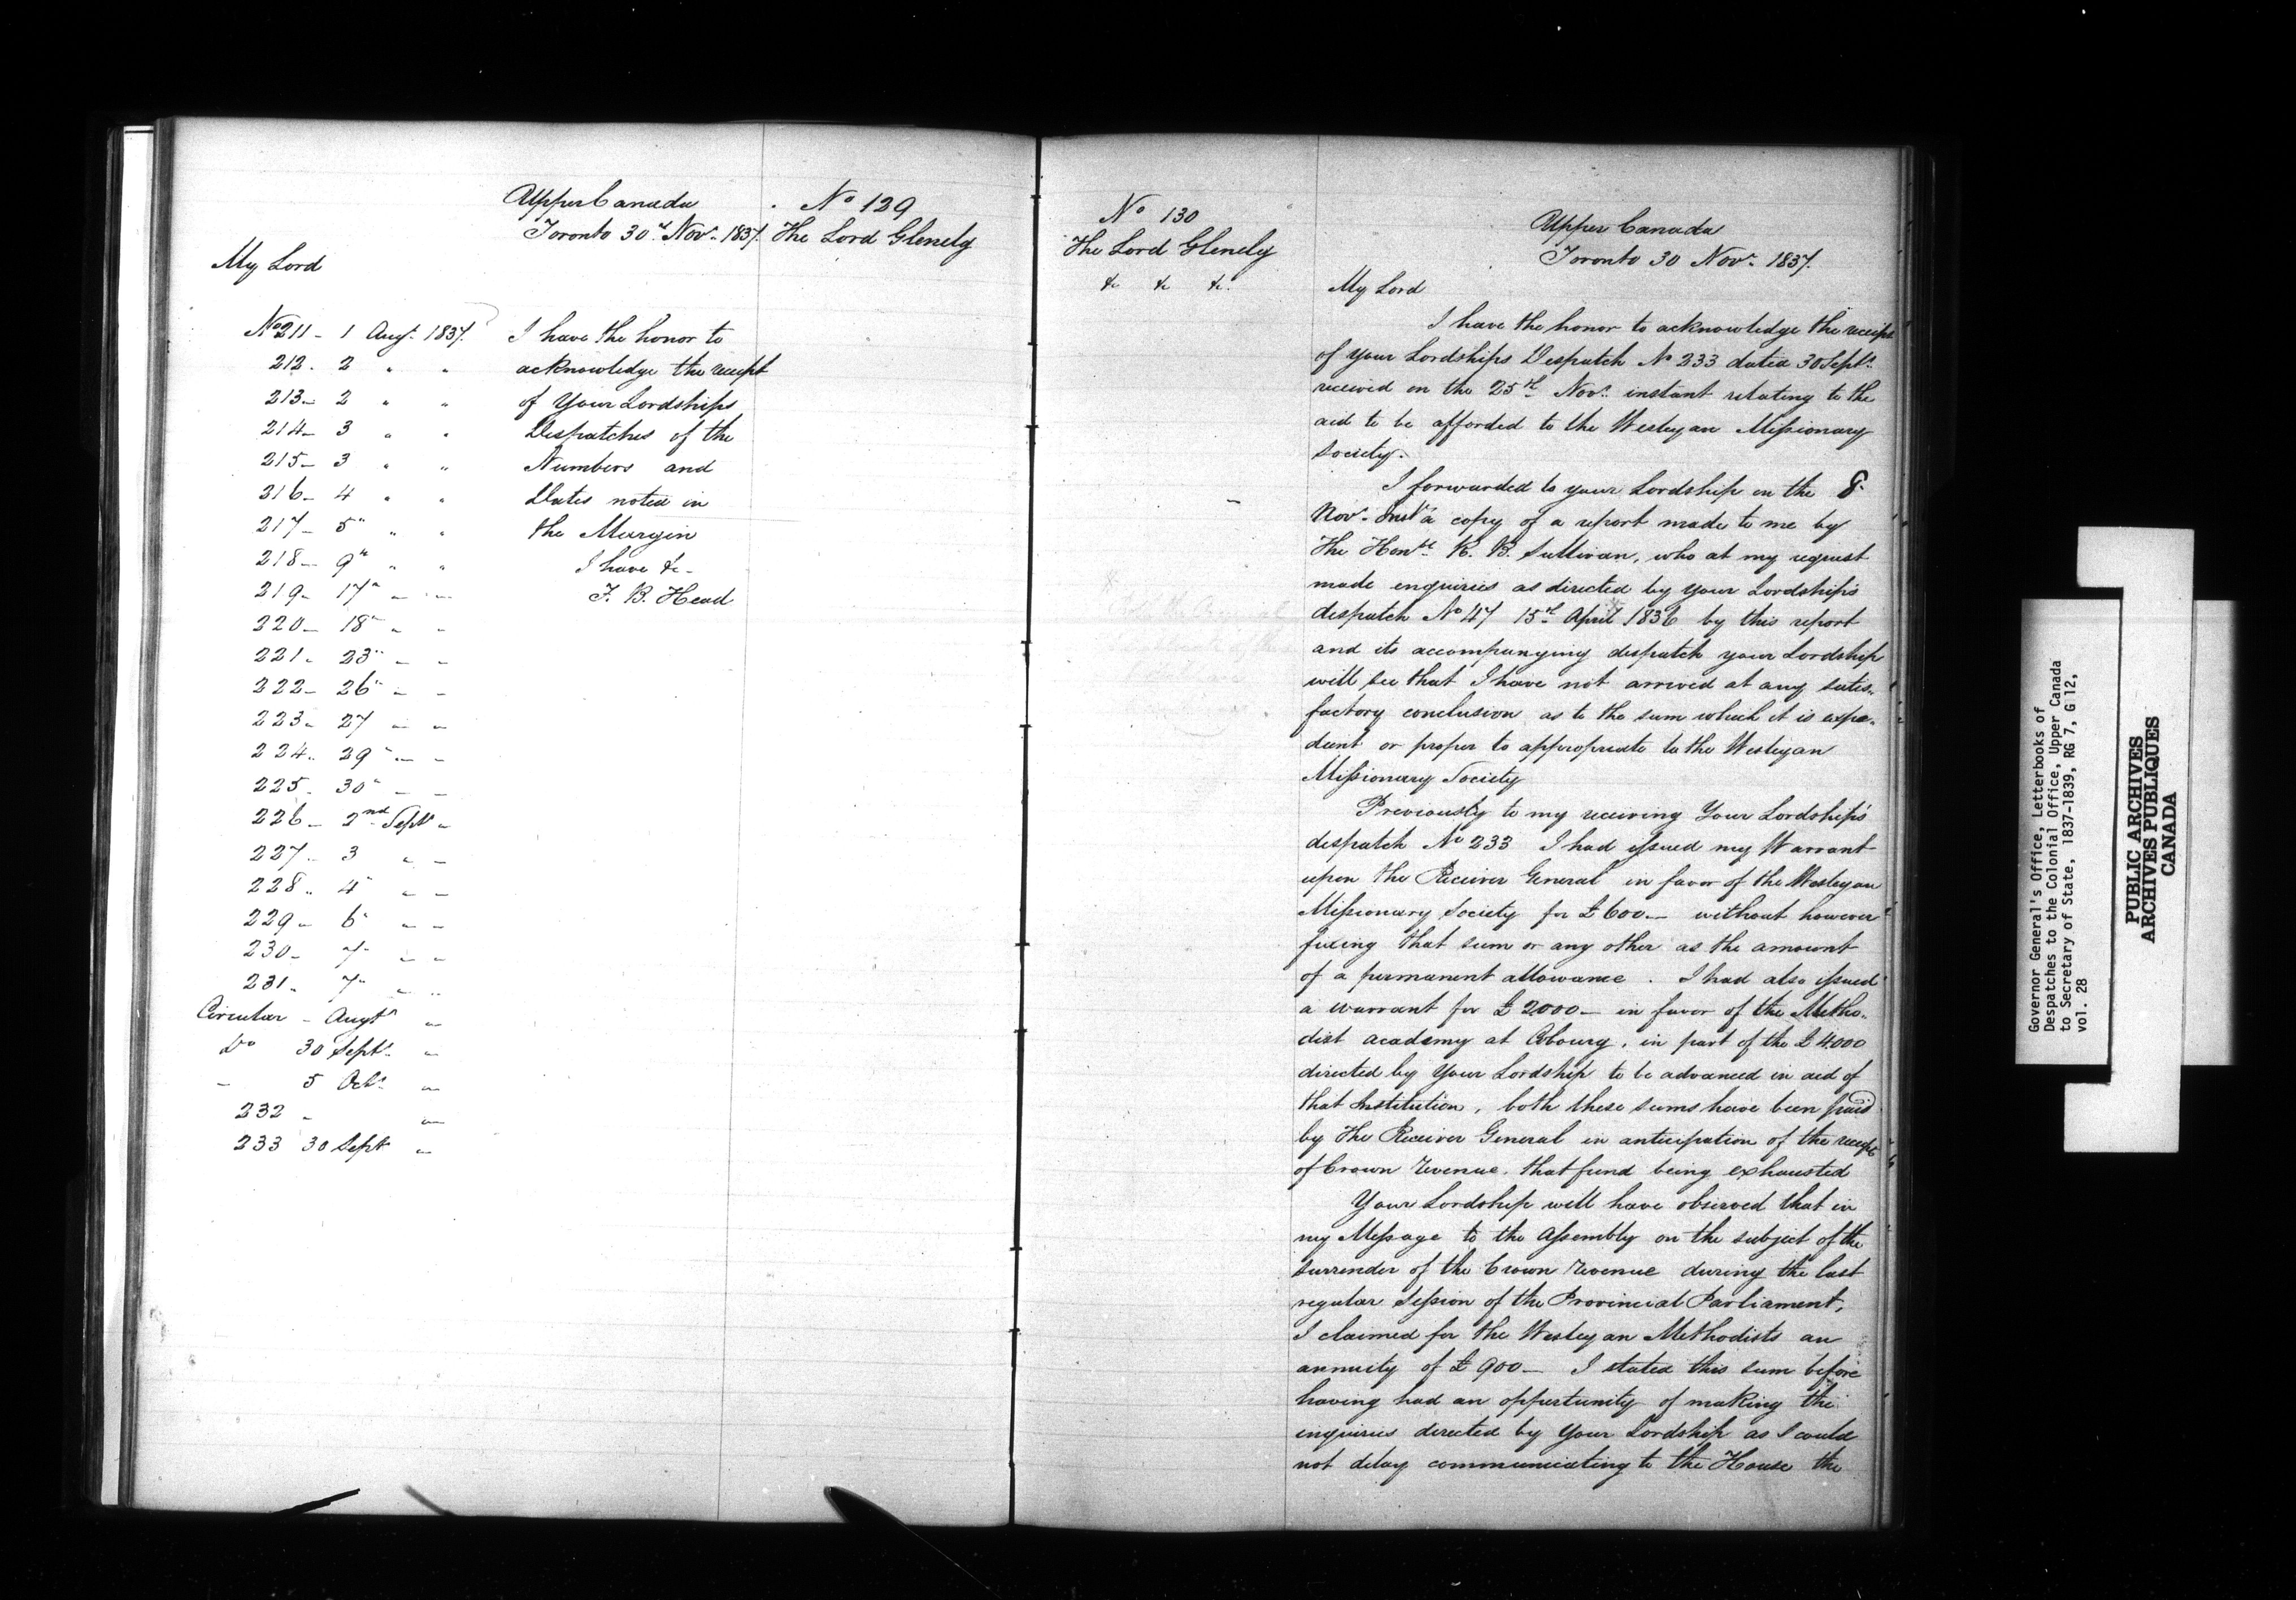 Upper Canada
Toronto 30th Novr. 1837.
No 129
The Lord Glenelg
My Lord
I have the honor to
acknowledge the receipt
of Your Lordships
Despatches of the
Numbers and
Dates noted in
the Margin
I have &c-
F. B. Head
No 211 - 1 Augt. 1837.
212. 2 " "
213- 2 " "
214- 3 " "
215- 3 " "
216- 4 " "
217- 5" " "
218- 9th " "
219- 17th " "
220- 18" " "
221. 23" - -
222- 26" - -
223- 27 - -
224.. 29 " - -
225. 30" - -
226- 2nd Sept -
227.. 3 " -
228.. 4" " -
229- 6" " -
230- 7" - -
231. 7" - "
Circular - Augt "
Do 30 Septr. "
- 5 Octr. "
232 - "
233 30 Sept "
No 130
The Lord Glenelg
&c &c &c.
Upper Canada
Toronto 30 Novr. 1837.
My Lord
I have the honor to acknowledge the receipt
of your Lordships Despatch No 233 dated 30 Septr.
received on the 25th Novr. instant relating to the
aid to be afforded to the Wesleyan Missionary
Society.
I forwarded to your Lordship on the 8
Novr. Inst a copy of a report made to me by
The Honble R. B. Sullivan, who at my request
made enquiries as directed by your Lordship's
despatch No 47 15th April 1836 by this report
and its accompanying despatch your Lordship
will see that I have not arrived at any satis-
factory conclusion as to the sum which it is expe-
dient or proper to appropriate to the Wesleyan
Missionary Society
Previously to my receiving Your Lordship's
despatch No 233 I had issued my Warrant
upon the Receiver General in favor of the Wesleyan
Missionary Society for £600- without however
fixing that sum or any other as the amount
of a permanent allowance. I had also issued
a warrant for £2000- in favor of the Metho-
dist academy at Cobourg, in part of the £4000
directed by Your Lordship to be advanced in aid of
that Institution, both these sums have been paid
by the Receiver General in anticipation of the receipt
of Crown Revenue, that fund being exhausted
Your Lordship will have observed that in
my Message to the Assembly on the subject of the
surrender of the Crown Revenue during the last
regular Session of the Provincial Parliament,
I claimed for the Wesleyan Methodists an
annuity of £900- I stated this sum before
having had an opportunity of making the
enquiries directed by Your Lordship as I could
not delay communicating to the House the
Governor General's Office, Letterbooks of
Despatches to the Colonial Office, Upper Canada
to Secretary of State, 1837-1839, RG 7, G 12,
vol. 28
PUBLIC ARCHIVES
ARCHIVES PUBLIQUES
CANADA